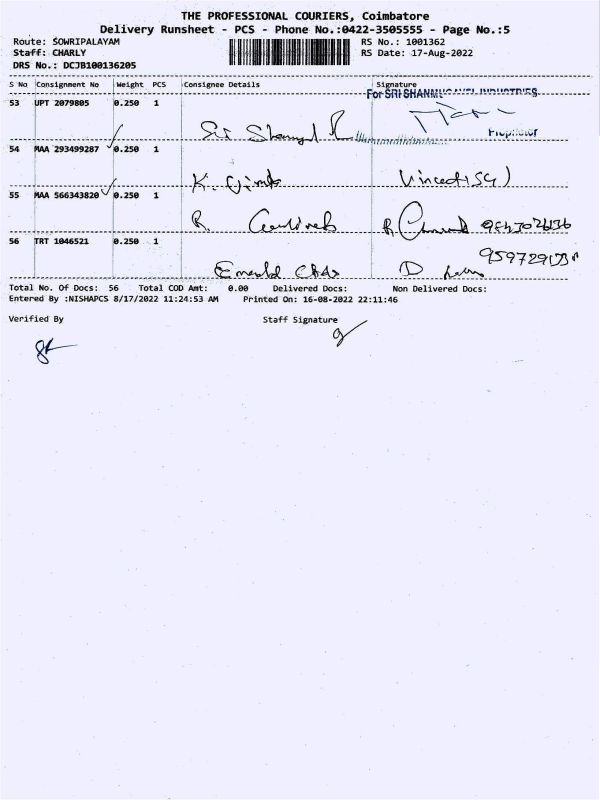 THE PROFESSIONAL COURIERS, Coimbatore
Delivery Runsheet - PCS - Phone No.:0422-3505555 - Page No.:5
Route: SOWRIPALAYAM RS No.: 1001362
Staff: CHARLY RS Date: 17-Aug-2022
DRS No.: DCJB100136205
S No Consignment No Weight PCS Consignee Details Signature
For SRI SHANMUGAVEL INDUSTRIES
53 UPT 2079805 0.250 1
Sri R
Proprietor
54 MAA 293499287 0.250 1
K.
55 MAA 566343820 0.250 1
R.
R
56 TRT 1046521 0.250 1
Emerald
D
Total No. Of Docs: 56 Total COD Amt: 0.00 Delivered Docs: Non Delivered Docs:
Entered By :NISHAPCS 8/17/2022 11:24:53 AM Printed On: 16-08-2022 22:11:46
Verified By Staff Signature